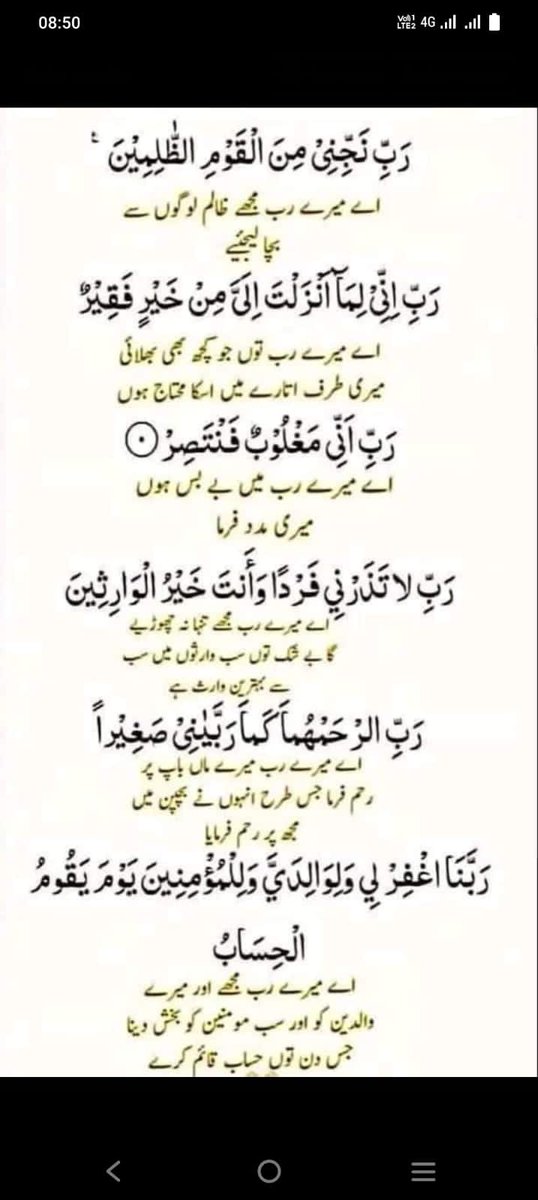 08:50
Vo1) LTE2 4G
رَبِّ نَجِّنِیْ مِنَ الْقَوْمِ الظّٰلِمِیْنَ
اے میرے رب مجھے ظالم لوگوں سے
بچا لیجئیے
رَبِّ اِنِّیْ لِمَاۤ اَنْزَلْتَ اِلَیَّ مِنْ خَیْرٍ فَقِیْرٌ
اے میرے رب توں جو کچھ بھی بھلائی
میری طرف اتارے میں اسکا محتاج ہوں
رَبِّ اَنِّیْ مَغْلُوْبٌ فَنْتَصِرْ
اے میرے رب میں بے بس ہوں
میری مدد فرما
رَبِّ لا تَذَرْنِي فَرْدًا وَأَنتَ خَيْرُ الْوَارِثِينَ
اے میرے رب مجھے تنہا نہ چھوڑیے
گا بے شک توں سب وارثوں میں سب
سے بہترین وارث ہے
رَبِّ الرْحَمْهُمَا كَمَا رَبَّیٰنِیْ صَغِیْراً
اے میرے رب میرے ماں باپ پر
رحم فرما جس طرح انہوں نے بچپن میں
مجھ پر رحم فرمایا
رَبَّنَا اغْفِرْ لِي وَلِوَالِدَيَّ وَلِلْمُؤْمِنِينَ يَوْمَ يَقُومُ
الْحِسَابُ
اے میرے رب مجھے اور میرے
والدین کو اور سب مومنین کو بخش دینا
جس دن توں حساب قائم کرے